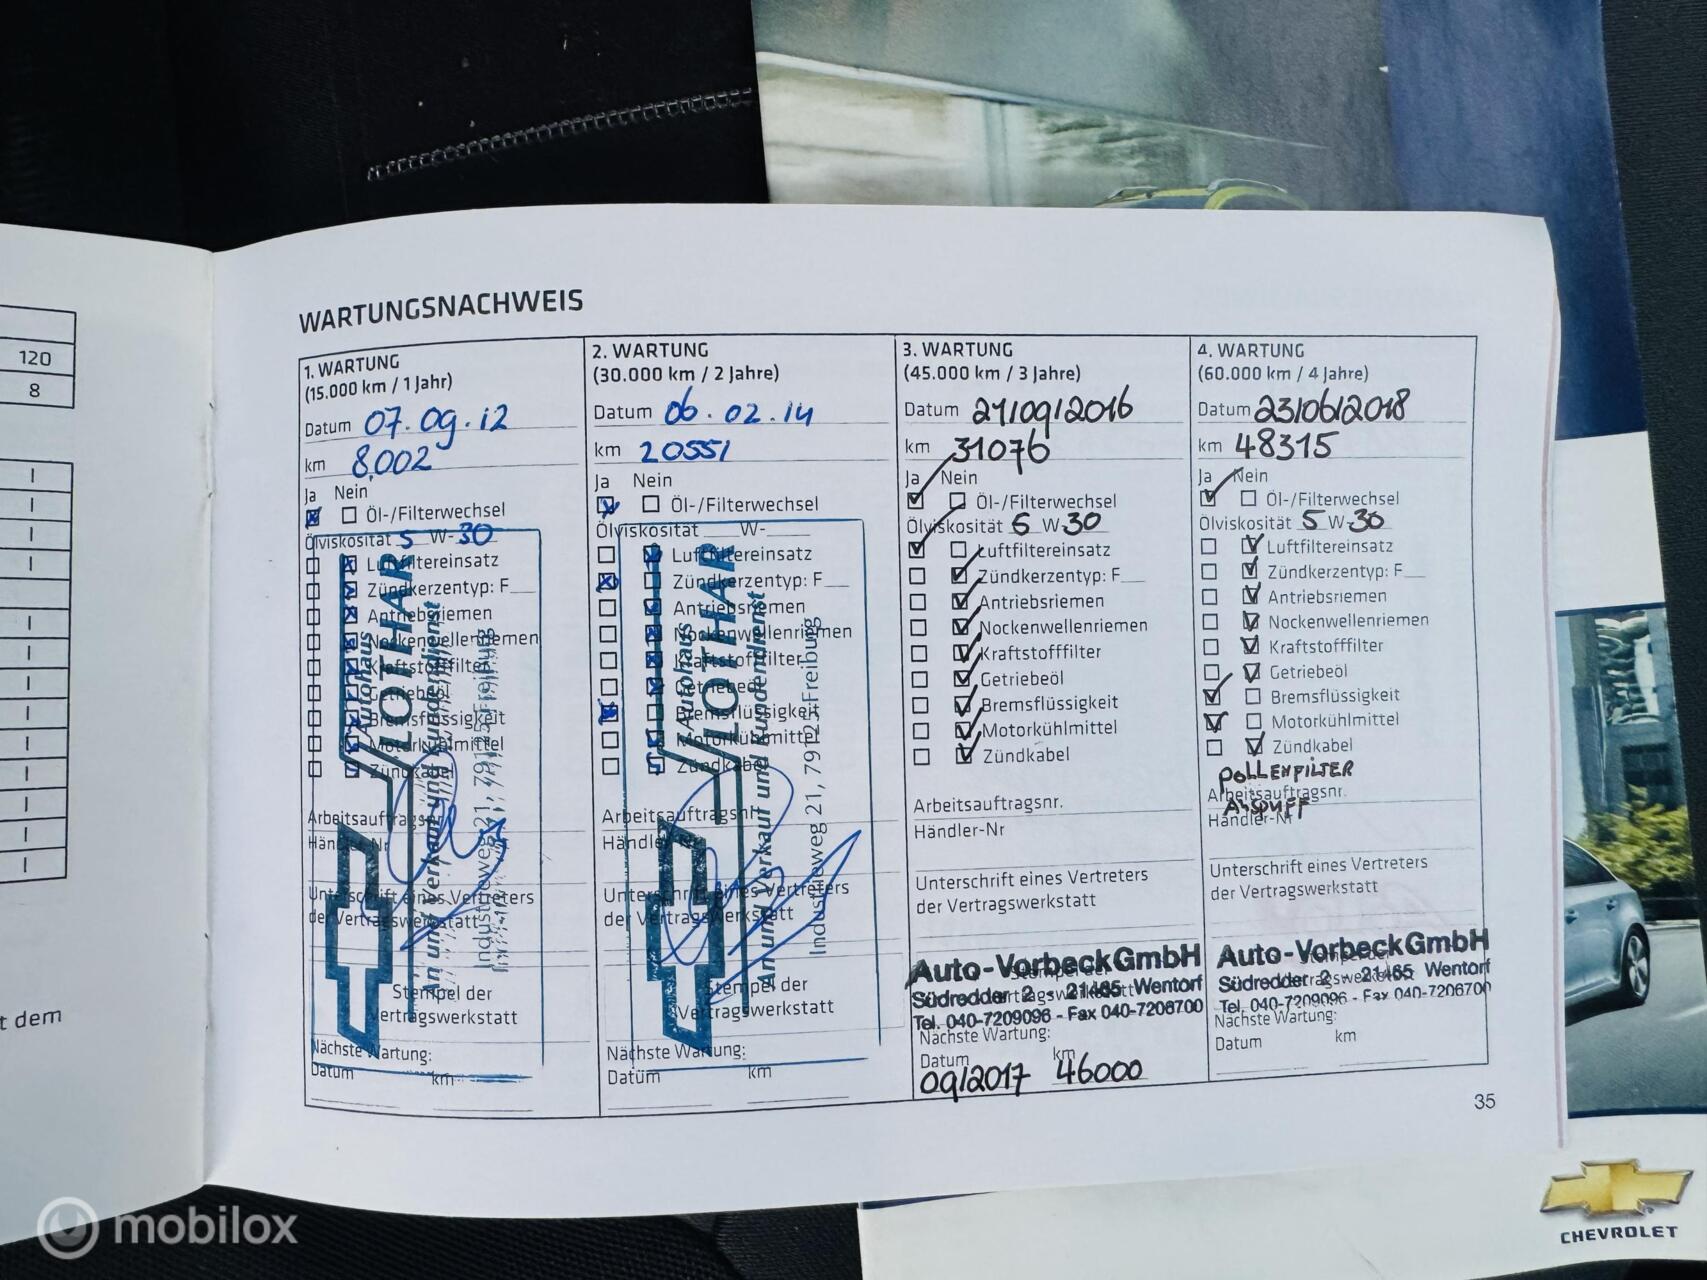 120
8
t dem
WARTUNGSNACHWEIS
1. WARTUNG
(15.000 km / 1 Jahr)
Datum 07.09.12
km 8.002
Ja Nein
Öl-/Filterwechsel
Ölviskosität 5 W-30
Luftfiltereinsatz
Zündkerzentyp: F
Antriebsriemen
Nockenwellenriemen
Kraftstofffilter
Getriebeöl
Bremsflüssigkeit
Motorkühlmittel
Zündkabel
Arbeitsauftragsnr.
Händler-Nr
Unterschrift eines Vertreters
der Vertragswerkstatt
Stempel der
Vertragswerkstatt
Autohaus
LOTHAR
An und Verkauf und Kundendienst
Industrieweg 21, 79115 Freiburg
Nächste Wartung:
Datum km
2. WARTUNG
(30.000 km / 2 Jahre)
Datum 06.02.14
km 20551
Ja Nein
Öl-/Filterwechsel
Ölviskosität W-
Luftfiltereinsatz
Zündkerzentyp: F
Antriebsriemen
Nockenwellenriemen
Kraftstofffilter
Getriebeöl
Bremsflüssigkeit
Motorkühlmittel
Zündkabel
Arbeitsauftragsnr.
Händler-Nr
Unterschrift eines Vertreters
der Vertragswerkstatt
Stempel der
Vertragswerkstatt
Autohaus
LOTHAR
An und Verkauf und Kundendienst
Industrieweg 21, 79115 Freiburg
Nächste Wartung:
Datum km
3. WARTUNG
(45.000 km / 3 Jahre)
Datum 21/09/2016
km 31076
Ja Nein
Öl-/Filterwechsel
Ölviskosität 5 W-30
Luftfiltereinsatz
Zündkerzentyp: F
Antriebsriemen
Nockenwellenriemen
Kraftstofffilter
Getriebeöl
Bremsflüssigkeit
Motorkühlmittel
Zündkabel
Arbeitsauftragsnr.
Händler-Nr
Unterschrift eines Vertreters
der Vertragswerkstatt
Stempel der
Vertragswerkstatt
Auto-Vorbeck GmbH
Südredder 2 - 21465 Wentorf
Tel. 040-7209096 - Fax 040-7206700
Nächste Wartung:
Datum km
09/2017 46000
4. WARTUNG
(60.000 km / 4 Jahre)
Datum 23/06/2018
km 48315
Ja Nein
Öl-/Filterwechsel
Ölviskosität 5 W-30
Luftfiltereinsatz
Zündkerzentyp: F
Antriebsriemen
Nockenwellenriemen
Kraftstofffilter
Getriebeöl
Bremsflüssigkeit
Motorkühlmittel
Zündkabel
POLLENFILTER
Arbeitsauftragsnr.
AUSPUFF
Händler-Nr
Unterschrift eines Vertreters
der Vertragswerkstatt
Stempel der
Vertragswerkstatt
Auto-Vorbeck GmbH
Südredder 2 - 21465 Wentorf
Tel. 040-7209096 - Fax 040-7206700
Nächste Wartung:
Datum km
35
CHEVROLET
mobilox